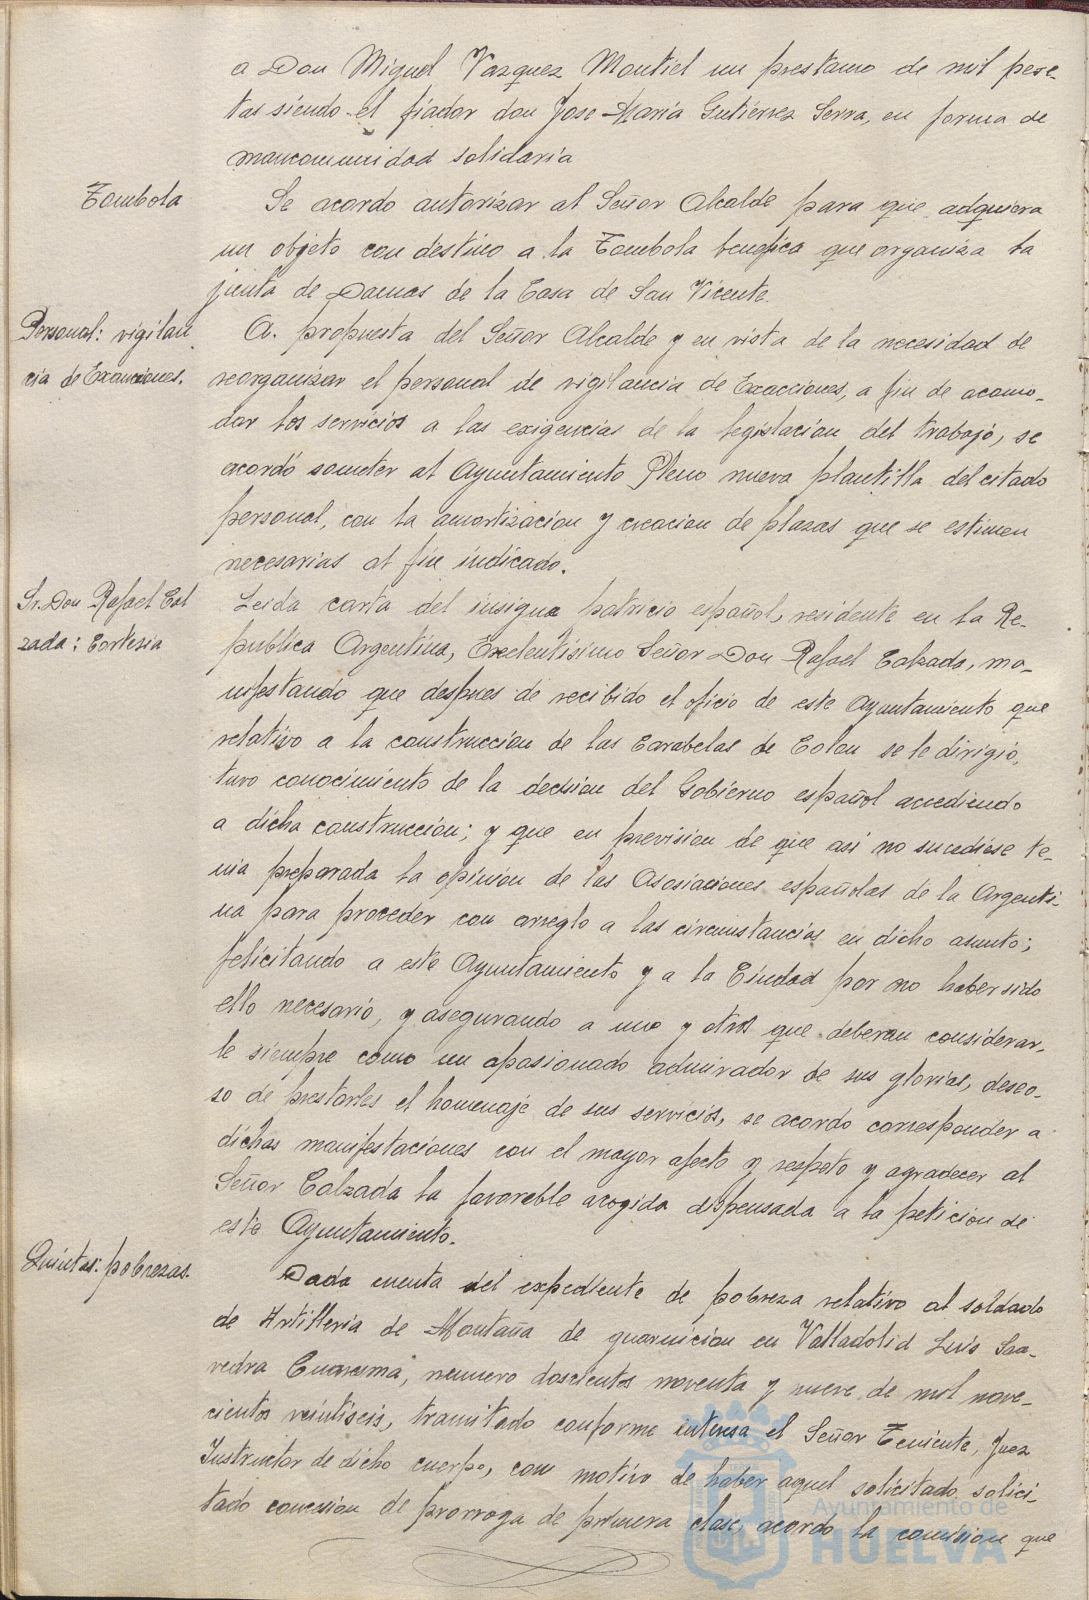 a Don Miguel Vazquez Montiel un prestamo de mil pese-
tas siendo el fiador don Jose Maria Gutierrez Serra, en forma de
mancomunidad solidaria
Tombola
Se acordo autorizar al Señor Alcalde para que adquiera
un objeto con destino a la Tombola benefica que organiza la
junta de Damas de la Casa de San Vicente.
Personal: vigilan
cia de Exacciones.
A. propuesta del Señor Alcalde y en vista de la necesidad de
reorganizar el personal de vigilancia de Exacciones, a fin de acomo-
dar los servicios a las exigencias de la legislacion del trabajo, se
acordó someter al Ayuntamiento Pleno nueva plantilla del citado
personal, con la amortizacion y creacion de plazas que se estimen
necesarias al fin indicado.
Sr. Don Rafael Cal
zada: Cortesia
Leida carta del insigne patricio español, residente en la Re-
publica Argentina, Exclentisimo Señor Don Rafael Calzada, ma-
nifestando que despues de recibido el oficio de este Ayuntamiento que
relativo a la construccion de las Carabelas de Colon se le dirigio,
tuvo conocimiento de la decision del Gobierno español accediendo
a dicha construccion; y que en prevision de que asi no sucediese te-
nia preparada la opinion de las Asosiaciones españolas de la Argenti-
na para proceder con arreglo a las circunstancias en dicho asunto;
felicitando a este Ayuntamiento y a la Ciudad por no haber sido
ello necesario, y asegurando a uno y otros que deberan considerar-
le siempre como un apasionado admirador de sus glorias, deseo-
so de prestarles el homenaje de sus servicios, se acordo corresponder a
dichas manifestaciones con el mayor afecto y respeto y agradecer al
Señor Calzada la favorable acogida dispensada a la peticion de
este Ayuntamiento.
Quintas: pobrezas.
Dada cuenta del expediente de pobreza relativo al soldado
de Artilleria de Montaña de guarnicion en Valladolid Luis Saa-
vedra Cuaresma, numero doscientos noventa y nueve de mil nove-
cientos veintiseis, tramitado conforme interesa el Señor Teniente, Juez
Instructor de dicho cuerpo, con motivo de haber aquel solicitado solici-
tado concesion de prorroga de primera clase, acordo la comision que
Ayuntamiento de
HUELVA